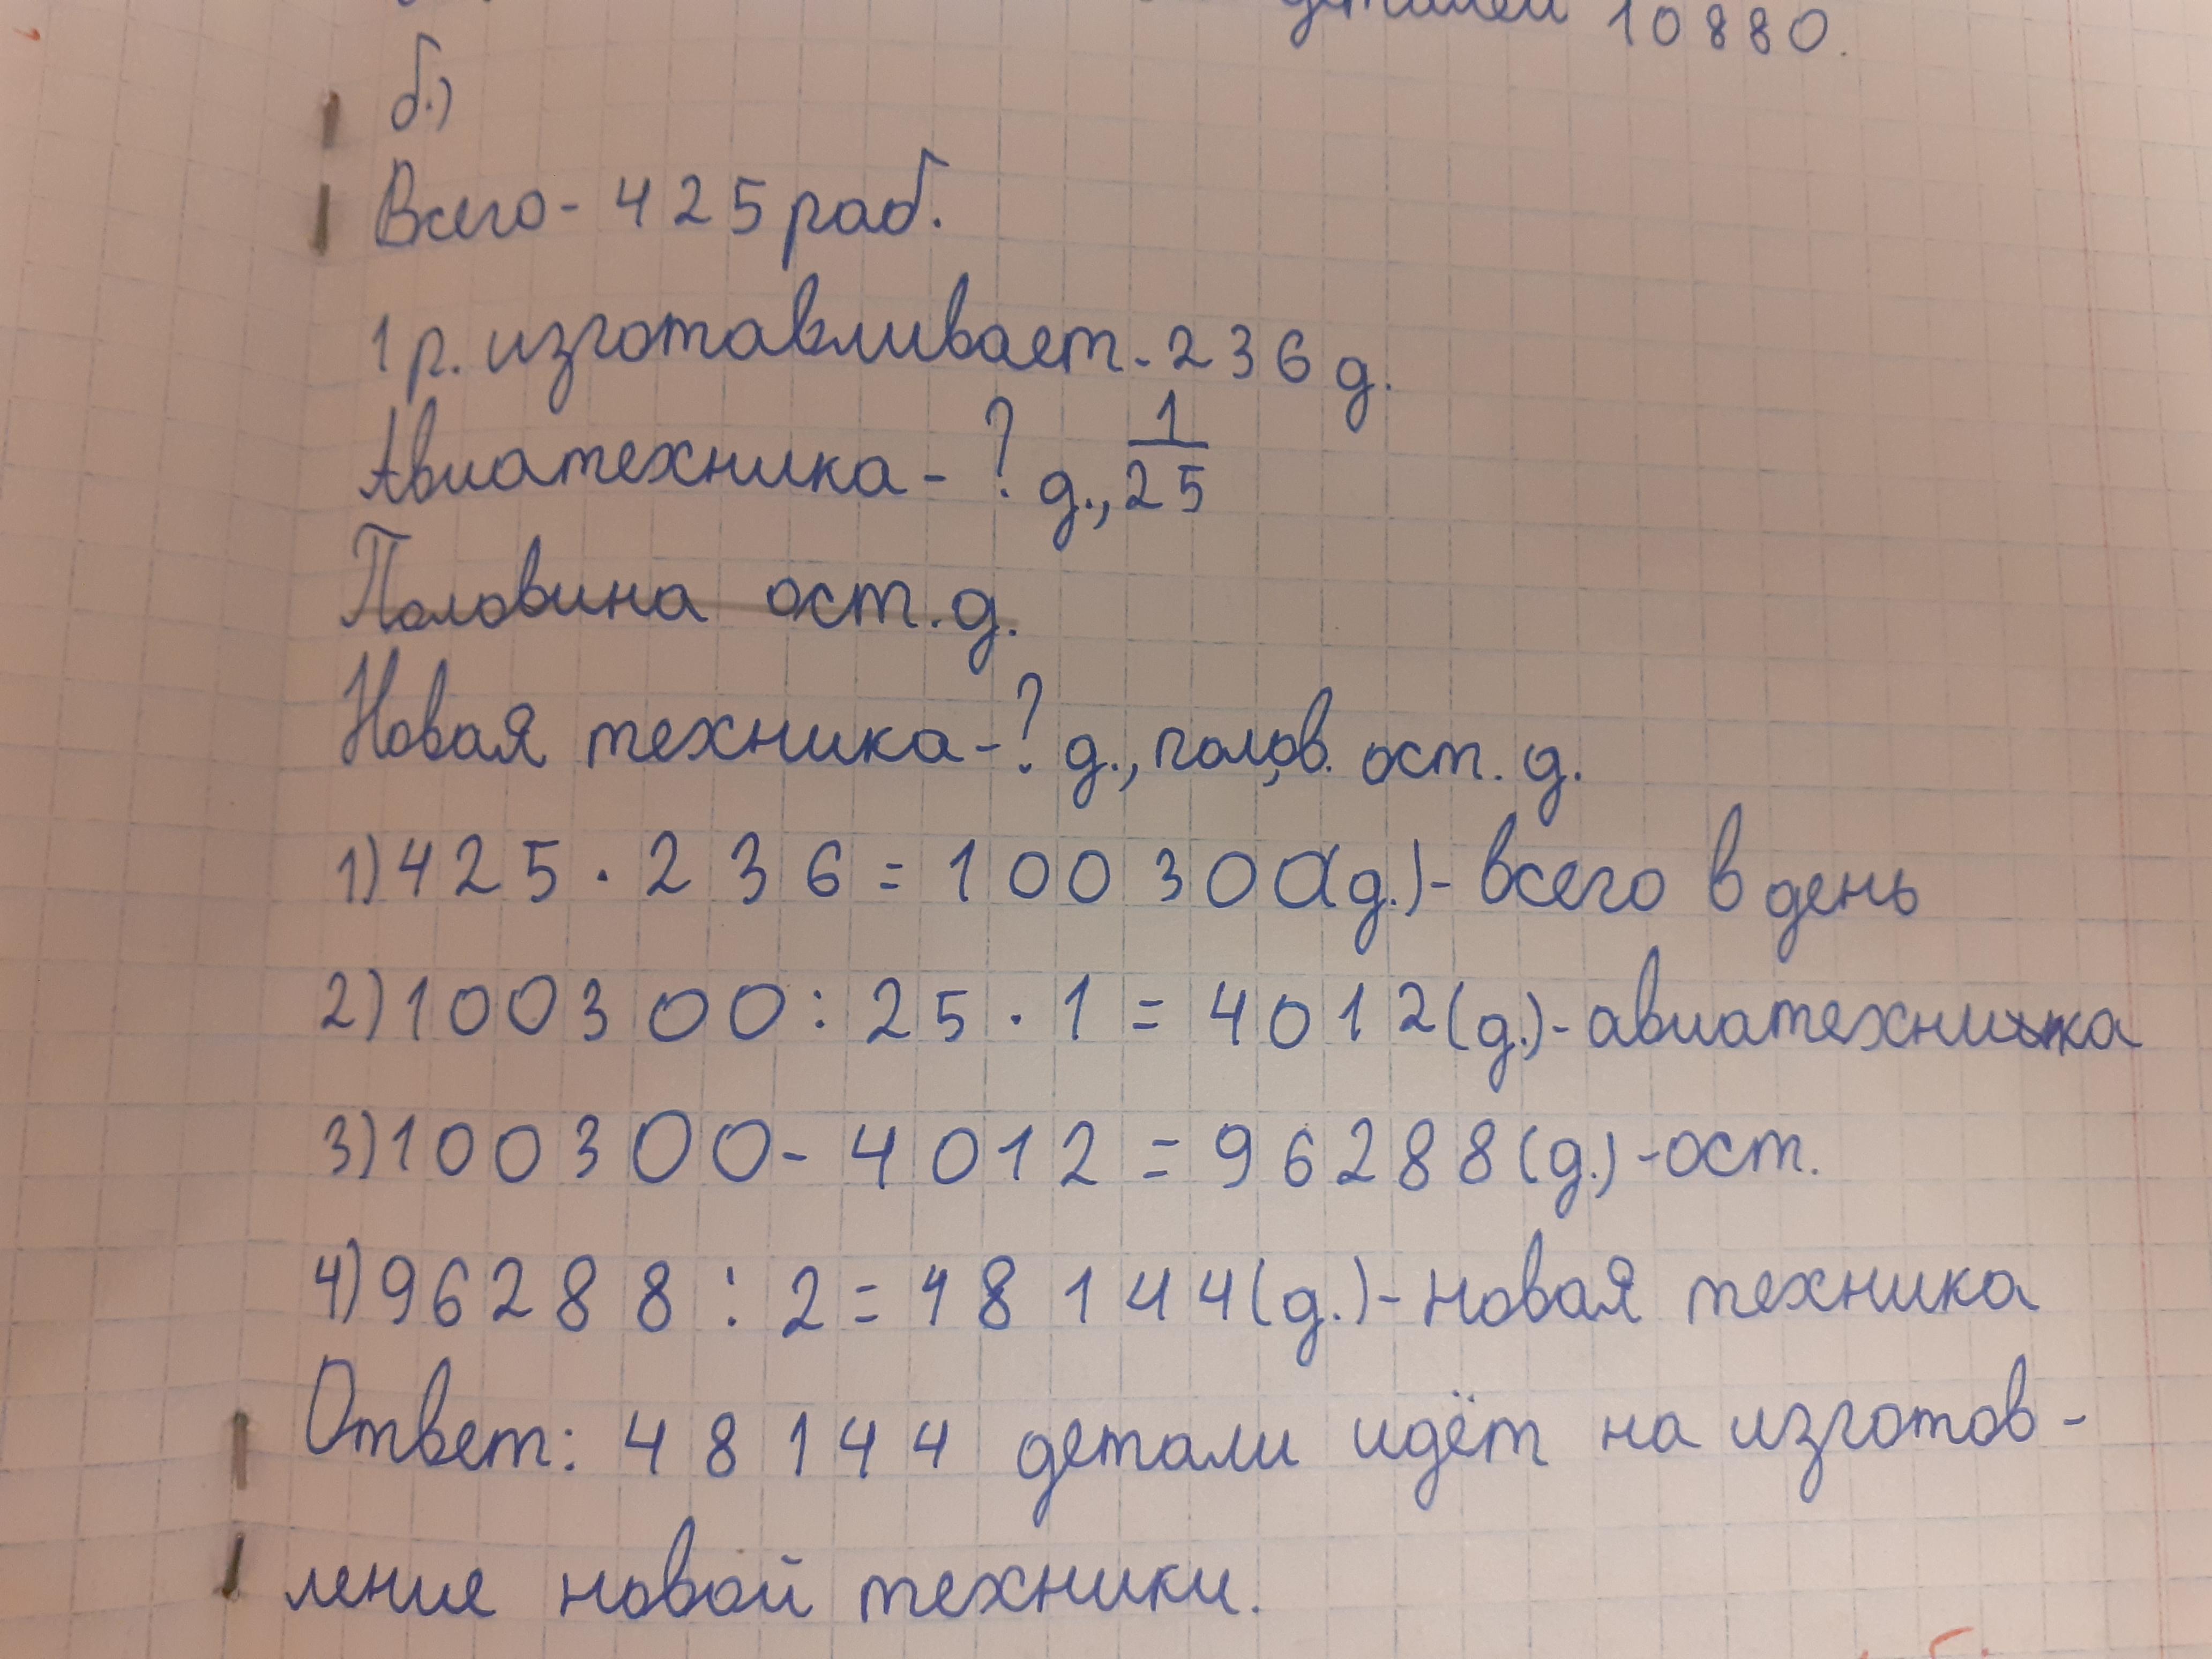 деталей 10880.
б.)
Всего - 425 раб.
1 р. изготавливает - 236 д.
Авиатехника - ? д., 1/25
Половина ост. д.
Новая техника - ? д., полов. ост. д.
1) 425 · 236 = 100300 (д.) - всего в день
2) 100300 : 25 · 1 = 4012 (д.) - авиатехника
3) 100300 - 4012 = 96288 (д.) - ост.
4) 96288 : 2 = 48144 (д.) - новая техника
Ответ: 48144 детали идёт на изготов-
ление новой техники.